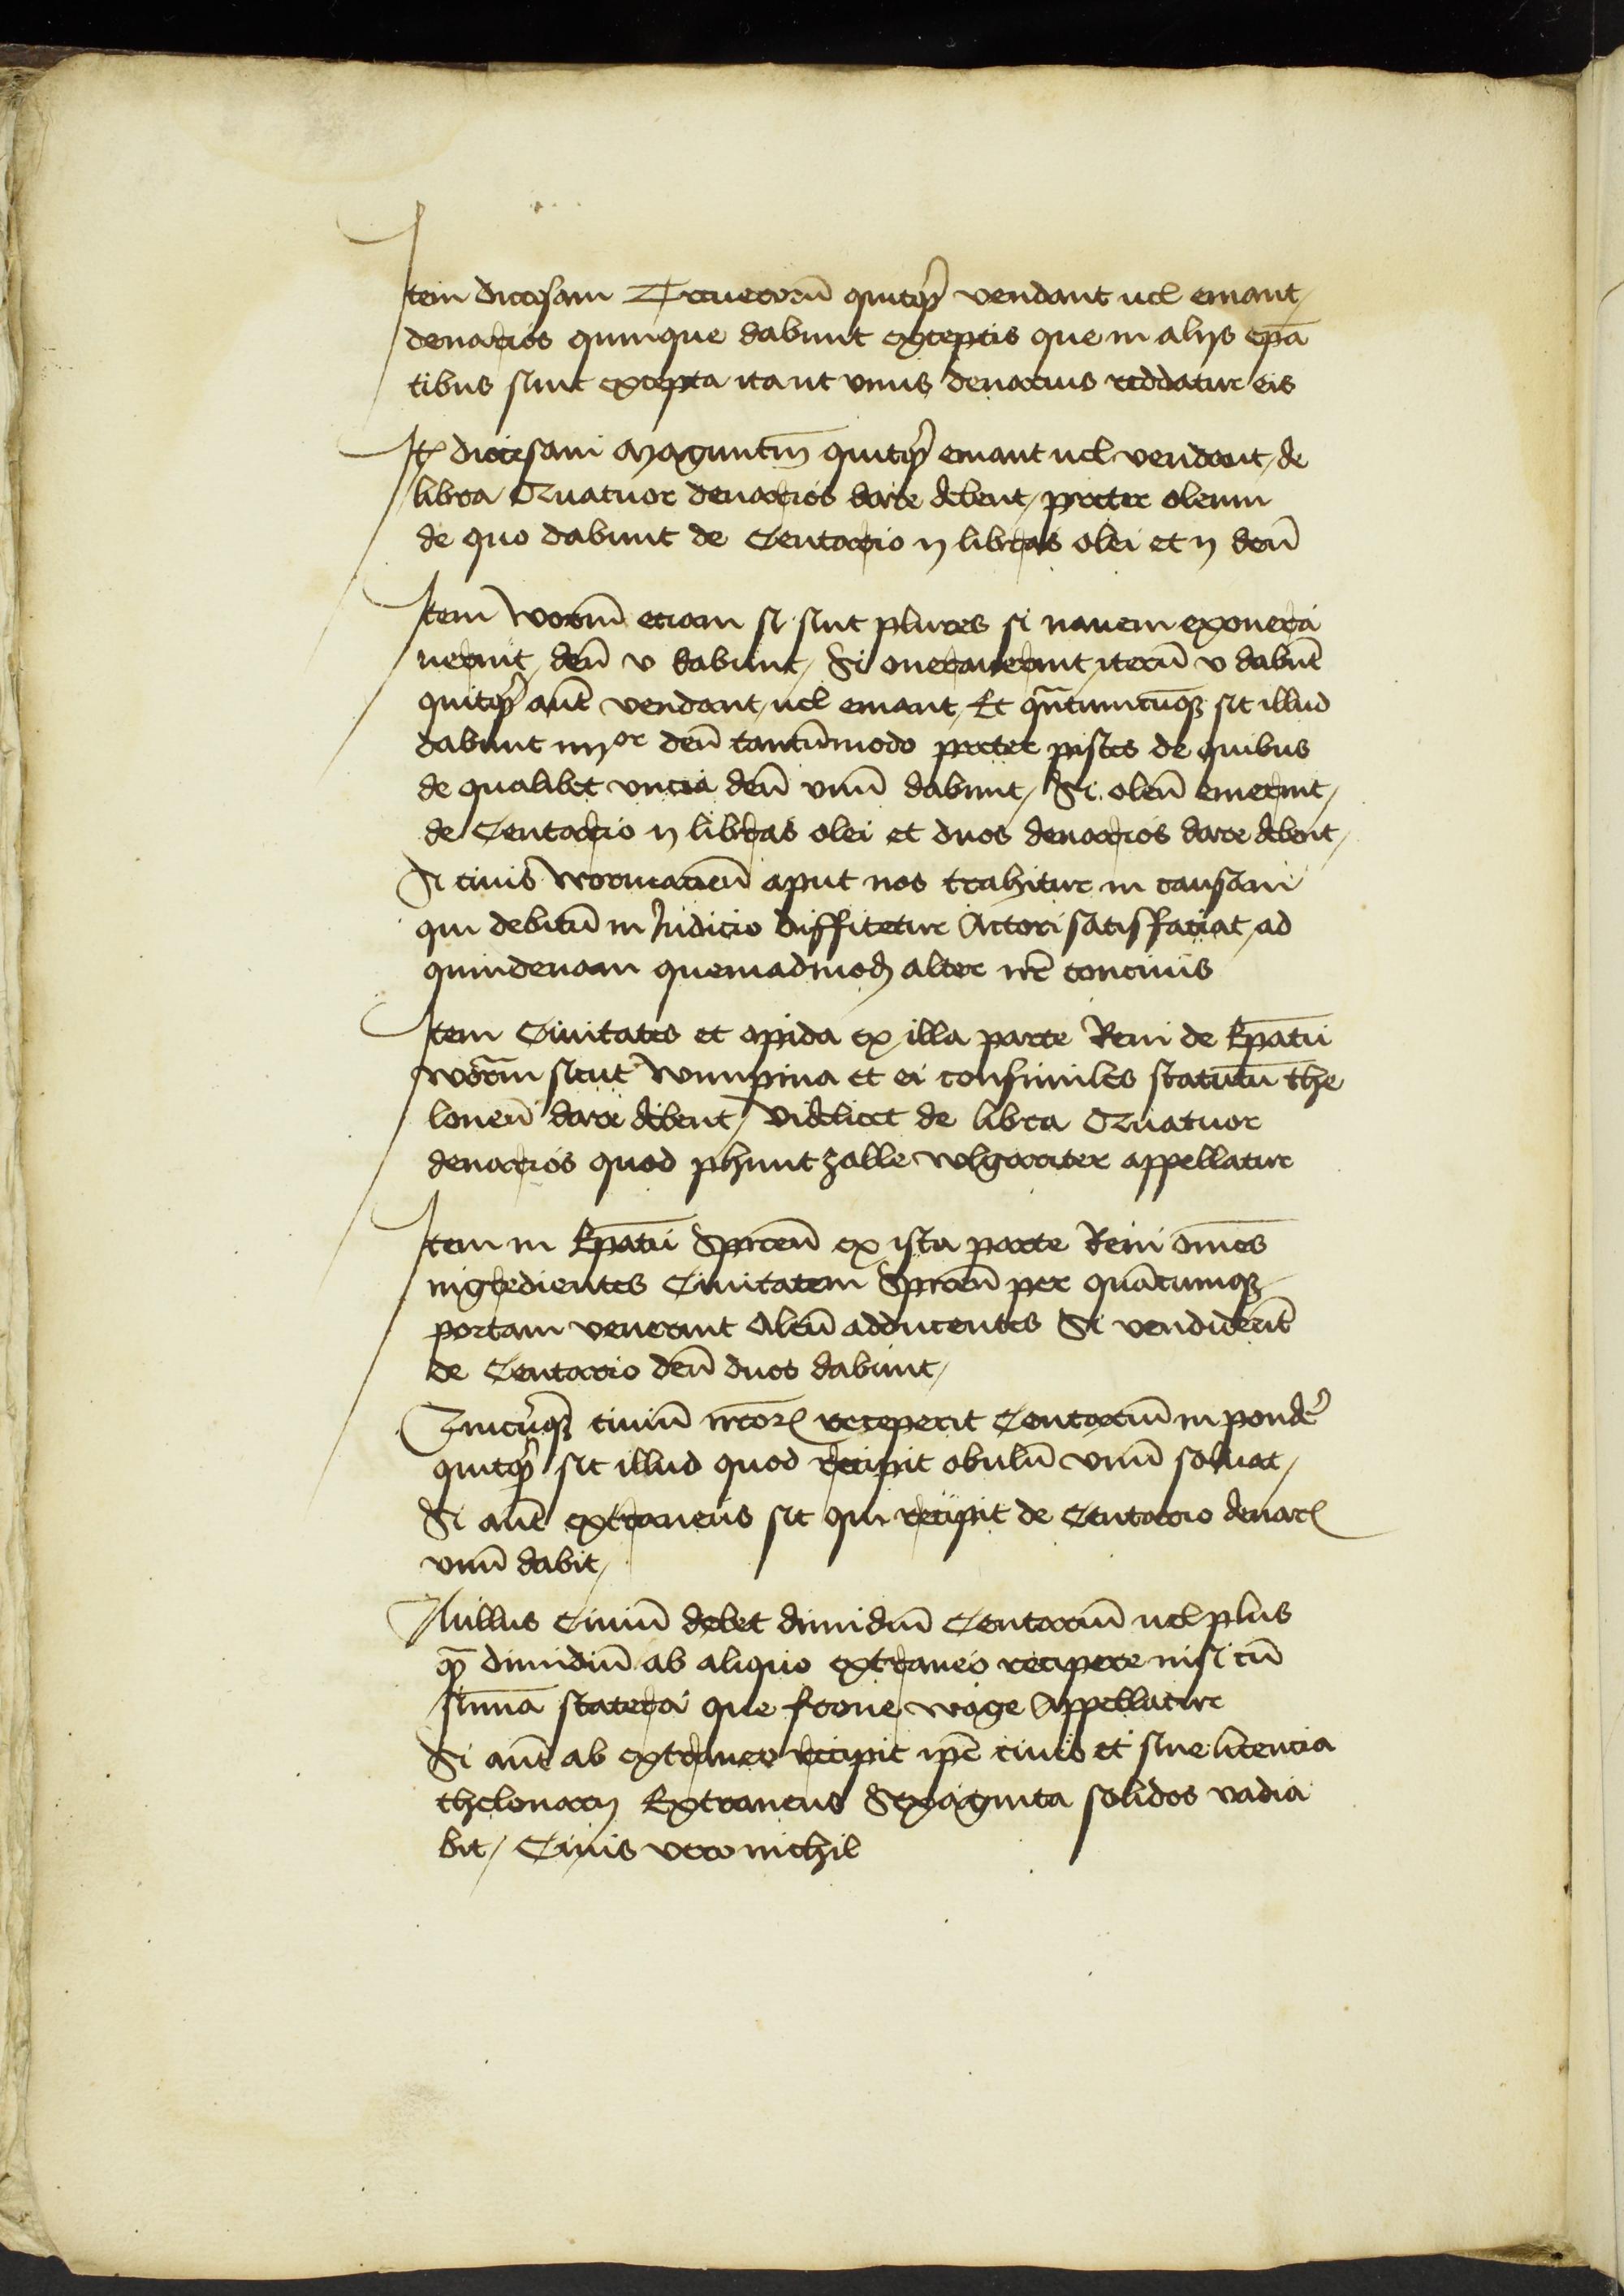 Item diocesani Treuerorū quitqͥd vendant uel emant /
denarios quinque dabunt exceptis que in alijs epā
tibus sunt excepta ita ut vnus denarius reddatur eis
Itē diocesani Magūntin̄ quitqͥd emant uel vendant / de
libra Quatuor denarios dare debent / preter oleum
de quo dabunt de Centario ij libras olei et ij den̄
Item worm̄ eciam si sint plures si nauem exonera
uerint / den̄ v dabunt / Si onerauerint / iterū v dabūt
quitqͥd aūt vendant / uel emant / Et qͣntumcūqꝫ sit illud
dabunt iiijor den̄ tantūmodo preter pisces de quibus
de qualibet vncia den̄ vnū dabunt / Si oleū emerint /
de Centario ij libras olei et duos denarios dare debent /
Si ciuis wormacien̄ aput nos trahitur in causam
qui debitū in Iudicio diffitetur Actori satisfaciat / ad
quindenam quemadmodꝫ alter nr̄ concinis
Item Ciuitates et opida ex illa parte Reni de Epatū
worm̄ sicut wimpina et ei consimiles statutū the
loneū dare debent / videlicet de libra Quatuor
denarios quod phuntzolle wlgariter appellatur
Item in Epatū Spiren̄ ex ista parte Reni om̄es
ingredientes Ciuitatem Spiren̄ per quācumqꝫ
portam venerint Oleū adducentes Si vendiderīt
de Centario den̄ duos dabunt /
Quicūqꝫ ciuiū nr̄orꝫ receperit Centariū in pondeͬ
quitqͥd sit illud quod recipit obulū vnū soluat /
Si aūt extraneus sit qui recipit de Centario denarꝫ
vnū dabit /
Nullus Ciuiū debet dimidiū Centariū uel plus
qͣm dimidiū ab aliquo extraneo recipere nisi cū
summa statera que frone wage Appellatur
Si aūt ab extraneo recipit ip̄e ciuis et sine licencia
thelonarij Extraneus Sexaginta solidos vadia
bit / Ciuis vero nichil